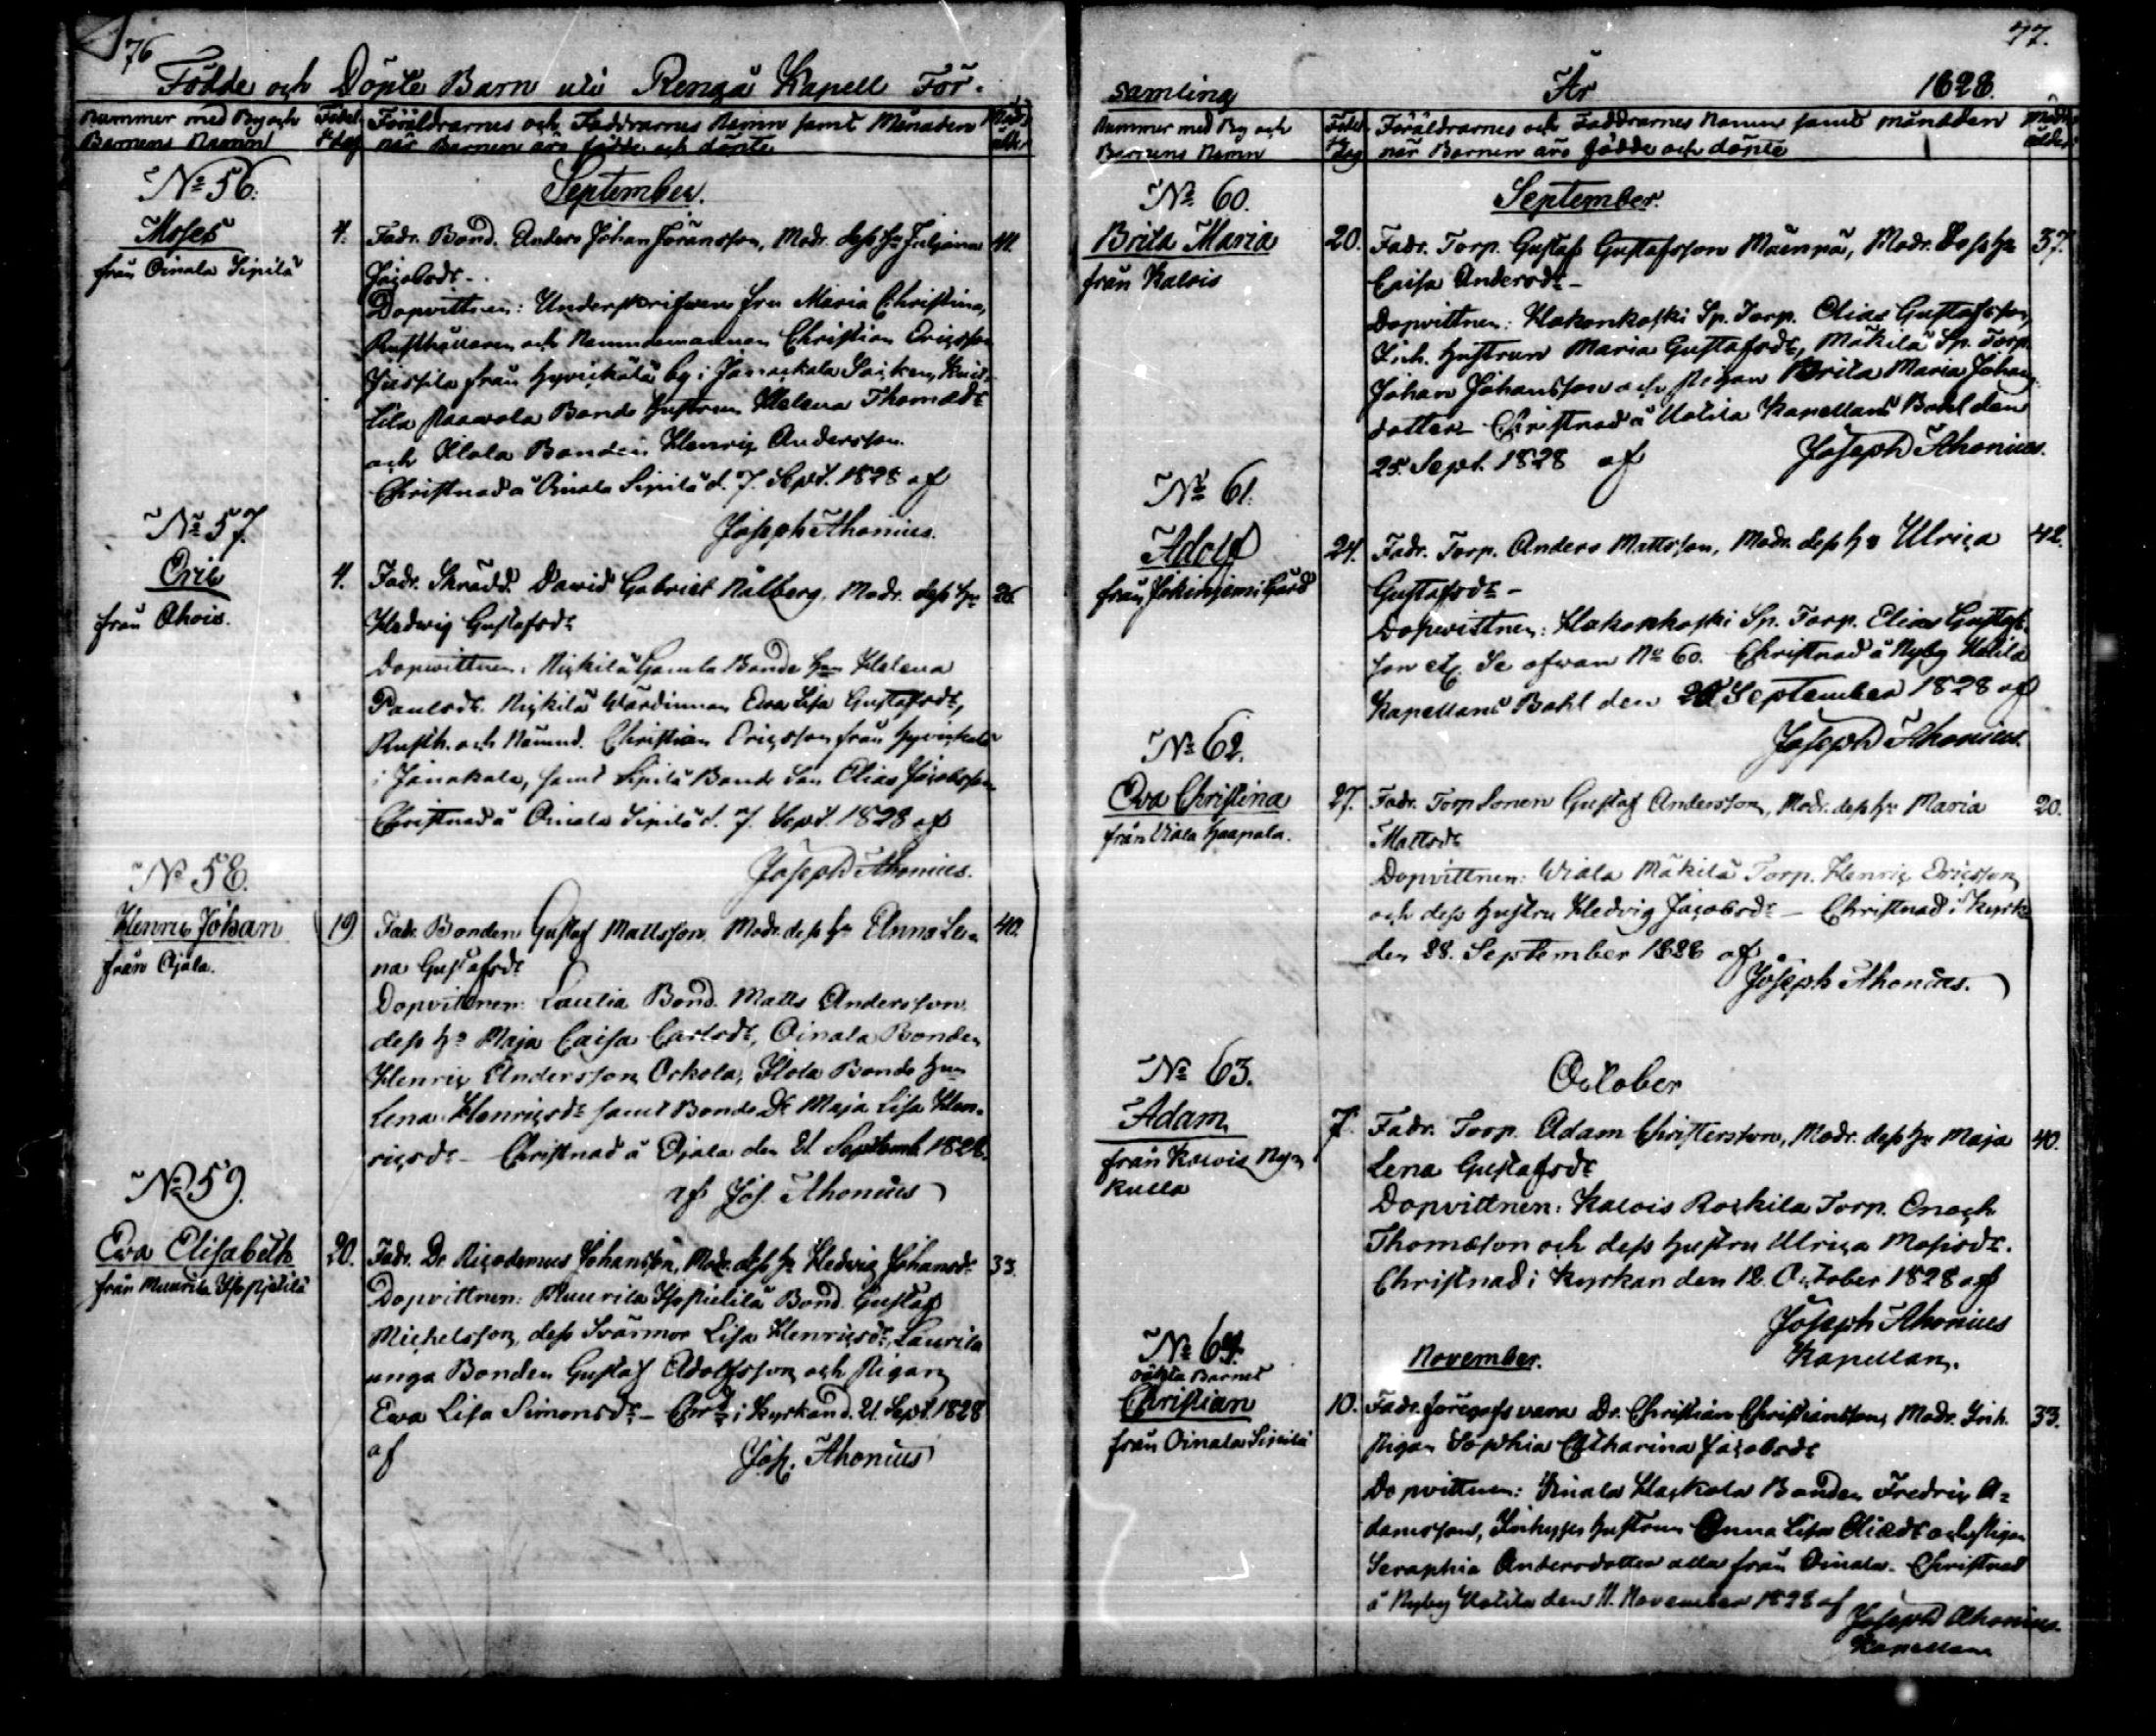 76
Födde och Döpte Barn uti Rengå Kapell För-
Nummer med By och Barnens Namn
Födel. dag
Föräldrarnes och Faddrarnes Namn samt Månaden
när Barnen äro födde och döpte
September.
No 56.
Moses
från Oinala Sipilä
4.
Fadr. Bond. Anders Johan Göransson, Modr. dess Hu Juljana
Jacobsdr.
Dopvittnen: Underskrifwens fru Maria Christina,
Rusthållaren och Nämndemannen Christian Ericsson
från Hyvickälä by i Janackala Socken,
Bonde Hustrun Helena Thomasdr
och Ilola Bonden Henric Andersson.
Christnad å Oinala Sipilä d. 7. Sept. 1828 af
Joseph Ahonius.
No 57.
Eric
från Ahois.
4.
Fadr. Skrädd. David Gabriel Nålberg, Modr. dess Hu
26
Hedwig Gustafsdr
Dopvittnen: Nickilä Gamla Bonde Hun Helena
Paulsdr. Nickilä Värdinnan Ewa Lisa Gustafsdr,
Rusth. och Nämnd. Christian Ericsson från Hyvickälä
i Janakala, samt Sipilä Bonde Son Elias Jacobsson
Christnad å Oinala Sipilä d. 7. Sept. 1828 af
Joseph Ahonius.
No 58.
Henric Johan
från Ojala.
19.
Fadr. Bonden Gustaf Mattsson, Modr. dess Hu Anna Le-
40.
na Gustafsdr
Dopvittnen: Lautia Bond. Matts Andersson
dess Hu Maja Caisa Carlsdr, Oinala Bonden
Henric Andersson Orkola, Ilola Bonde Hun
Lena Henricsdr samt Bonde Dr Maja Lisa Hen-
ricsdr - Christnad å Ojala den 21 Septemb. 1828.
af Jos. Ahonius
No 59.
Ewa Elisabeth
från Muurila
20.
Fadr. Dr. Nicodemus Johansson, Modr. dess Hu Hedvig Johansdr
33.
Dopvittnen: Muurila Bond. Gustaf
Michelsson, dess Svärmor Lisa Henricsdr, Laurila
unga Bonden Gustaf Adolfsson och Pigan
Ewa Lisa Simonsdr - i Kyrkan d. 21. Sept. 1828
af Jos. Ahonius
77.
samling År 1828.
Nummer med By och Barnens Namn
Födel. dag
Föräldrarnes och Faddrarnes Namn samt månaden
när Barnen äro födde och döpte
No 60.
September.
Brita Maria
från Kalois
20.
Fadr. Torp. Gustaf Gustafsson Mäenpä, Modr. dess Hu
37.
Caisa Andersdr -
Dopvittnen: Hakonkoski Sp. Torp. Elias Gustafsson,
Inh. Hustrun Maria Gustafsdr, Mäkilä Sp. Torp.
Johan Johansson och Pigan Brita Maria Johans-
dotter - Christnad å Uotila Kapellans Bohl den
25. Sept. 1828 af Joseph Ahonius.
No 61.
Adolf
från Jokiniemi Gård
24.
Fadr. Torp. Anders Mattsson, Modr. dess Hu Ulrica
42.
Gustafsdr -
Dopvittnen: Hakonkoski Sp. Torp. Elias Gustafs-
son etc. Se ofwan No 60. Christnad å Nyby Uotila
Kapellans Bohl den September 1828 af
Joseph Ahonius.
No 62.
Eva Christina
från Viala Haapala.
27.
Fadr. Torp Sonen Gustaf Andersson, Modr. dess Hu Maria
20.
Mattsdr
Dopvittnen: Wiala Mäkilä Torp. Henric Ericsson
och dess Hustru Hedvig Jacobsdr - Christnad i Kyrk.
den 28. September 1828 af
Joseph Ahonius.
October
No 63.
Adam
från Kalois Nyn
kulla
7.
Fadr. Torp. Adam Christersson, Modr. dess Hu Maja
40.
Lena Gustafsdr
Dopvittnen: Kalois Rockila Torp. Enoch
Thomasson och dess Hustru Ulrica Mosisdr.
Christnad i Kyrkan den 12. October 1828 af
Joseph Ahonius
Kapellan.
No 64.
oäkta Barnet
November.
Christian
från Oinala Sipilä
10.
Fadr. föregafs vara Dr. Christian Christiansson, Modr. Inh.
33.
Pigan Sophia Catharina Jacobsdr
Dopvittnen: Oinala Hackola Bonden Fredric A-
damsson, Inhyses Hustrun Anna Lisa Eliædr och Pigan
Seraphia Andersdotter alla från Oinala. Christnad
å Nyby Uotila den 11. November 1828 af
Joseph Ahonius.
Kapellan